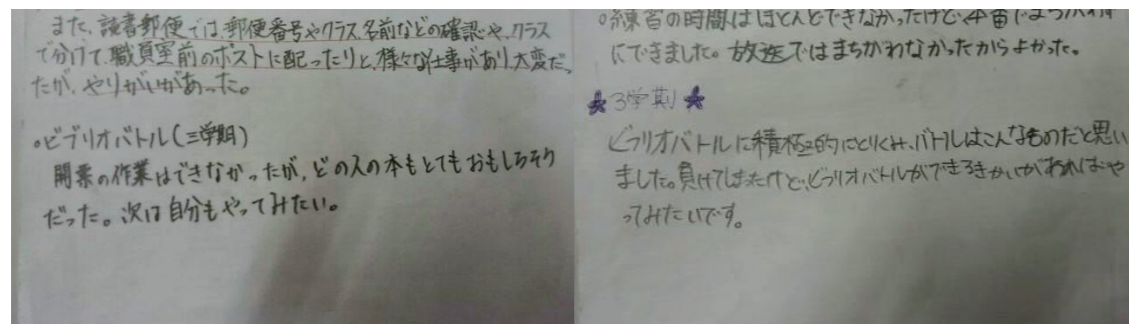 また、読書郵便では、郵便番号やクラス、名前などの確認や、クラス
で分けて、職員室前のポストに配ったりと、様々な仕事があり、大変だっ
たが、やりがいがあった。
・ビブリオバトル(三学期)
開票の作業はできなかったが、どの人の本もとてもおもしろそう
だった。次は自分もやってみたい。
○練習の時間はほとんどできなかったけど、本番でまちがわず
にできました。放送ではまちがわなかったからよかった。
★3学期★
ビブリオバトルに積極的にとりくみ、バトルはこんなものだと思い
ました。負けてしまったけど、ビブリオバトルができるきかいがあればや
ってみたいです。